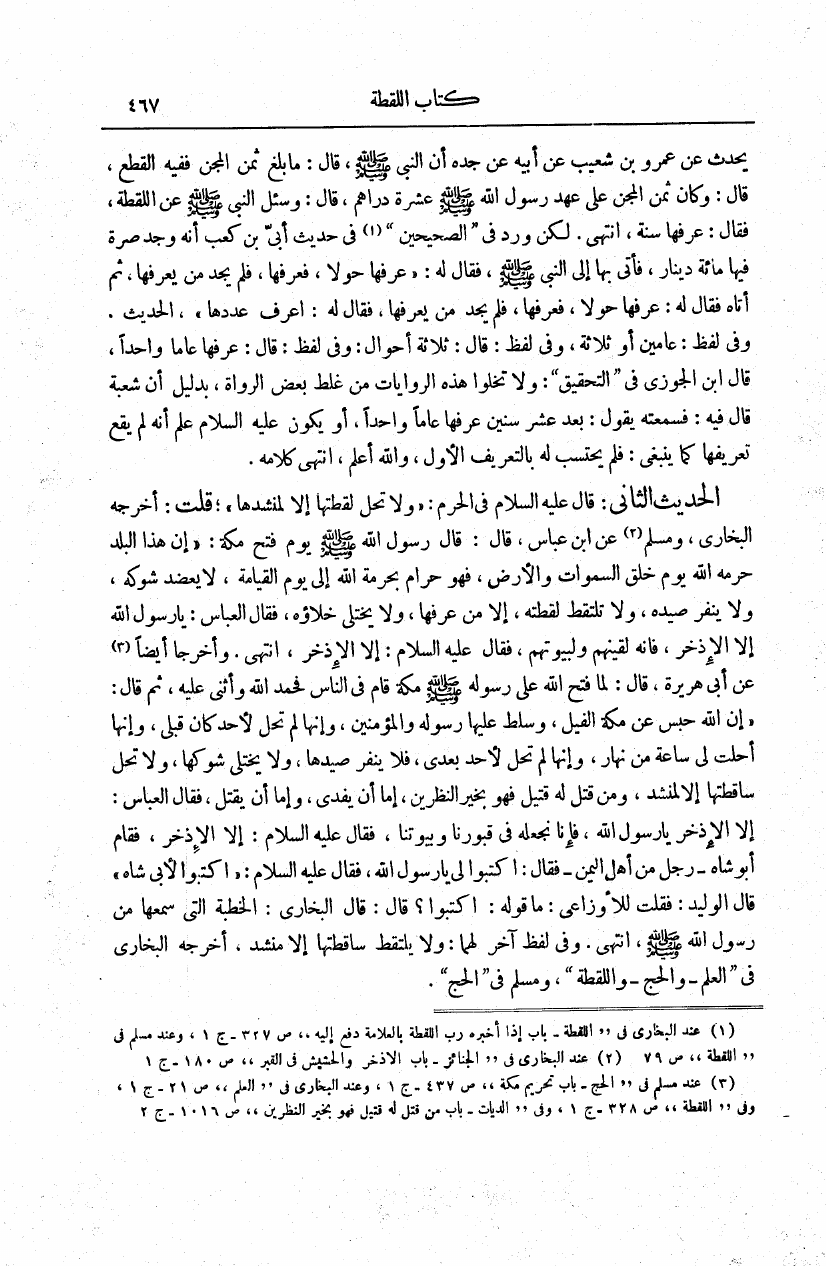 كتاب اللقطة ٤٦٧
يحدث عن عمرو بن شعيب عن أبيه عن جده أن النبي ﷺ ، قال : ما بلغ ثمن المجن ففيه القطع ،
قال : وكان ثمن المجن على عهد رسول الله ﷺ عشرة دراهم ، قال : وسئل النبي ﷺ عن اللقطة ،
فقال : عرفها سنة ، انتهى . لكن ورد فى " الصحيحين " (١) فى حديث أبىّ بن كعب أنه وجد صرة
فيها مائة دينار ، فأتى بها إلى النبي ﷺ ، فقال له : « عرفها حولا ، فعرفها ، فلم يجد من يعرفها ، ثم
أتاه فقال له : عرفها حولا ، فعرفها ، فلم يجد من يعرفها ، فقال له : اعرف عددها » ، الحديث .
وفى لفظ : عامين أو ثلاثة ، وفى لفظ : قال : ثلاثة أحوال : وفى لفظ : قال : عرفها عاما واحداً ،
قال ابن الجوزى فى " التحقيق " : ولا تخلوا هذه الروايات من غلط بعض الرواة ، بدليل أن شعبة
قال فيه : فسمعته يقول : بعد عشر سنين عرفها عاماً واحداً ، أو يكون عليه السلام علم أنه لم يقع
تعريفها كما ينبغى : فلم يحتسب له بالتعريف الأول ، والله أعلم ، انتهى كلامه .
الحديث الثانى : قال عليه السلام فى الحرم : « ولا تحل لقطتها إلا لمنشدها » ؛ قلت : أخرجه
البخارى ، ومسلم (٢) عن ابن عباس ، قال : قال رسول الله ﷺ يوم فتح مكة : « إن هذا البلد
حرمه الله يوم خلق السموات والأرض ، فهو حرام بحرمة الله إلى يوم القيامة ، لا يعضد شوكه ،
ولا ينفر صيده ، ولا تلتقط لقطته ، إلا من عرفها ، ولا يختلى خلاؤه ، فقال العباس : يارسول الله
إلا الإذخر ، فانه لقينهم ولبيوتهم ، فقال عليه السلام : إلا الإذخر ، انتهى . وأخرجا أيضاً (٣)
عن أبى هريرة ، قال : لما فتح الله على رسوله ﷺ مكة قام فى الناس فحمد الله وأثنى عليه ، ثم قال :
« إن الله حبس عن مكة الفيل ، وسلط عليها رسوله والمؤمنين ، وإنها لم تحل لأحد كان قبلى ، وإنها
أحلت لى ساعة من نهار ، وإنها لم تحل لأحد بعدى ، فلا ينفر صيدها ، ولا يختلى شوكها ، ولا تحل
ساقطتها إلا لمنشد ، ومن قتل له قتيل فهو بخير النظرين ، إما أن يفدى ، وإما أن يقتل ، فقال العباس :
إلا الإذخر يارسول الله ، فإنا نجعله فى قبورنا وبيوتنا ، فقال عليه السلام : إلا الإذخر ، فقام
أبو شاه ـ رجل من أهل اليمن ـ فقال : اكتبوا لى يارسول الله ، فقال عليه السلام : « اكتبوا لأبى شاه »
قال الوليد : فقلت للأوزاعى : ما قوله : اكتبوا ؟ قال : قال البخارى : الخطبة التى سمعها من
رسول الله ﷺ ، انتهى . وفى لفظ آخر لهما : ولا يلتقط ساقطتها إلا منشد ، أخرجه البخارى
فى " العلم ـ والحج ـ واللقطة " ، ومسلم فى " الحج " .
(١) عند البخارى فى ,, اللقطة ـ باب إذا أخبره رب اللقطة بالعلامة دفع إليه ,, ص ٣٢٧ ـ ج ١ ، وعند مسلم فى
,, اللقطة ,, ص ٧٩ (٢) عند البخارى فى ,, الجنائز ـ باب الاذخر والحشيش فى القبر ,, ص ١٨٠ ـ ج ١
(٣) عند مسلم فى ,, الحج ـ باب تحريم مكة ,, ص ٤٣٧ ـ ج ١ ، وعند البخارى فى ,, العلم ,, ص ٢١ ـ ج ١ ،
وفى ,, اللقطة ,, ص ٣٢٨ ـ ج ١ ، وفى ,, الديات ـ باب من قتل له قتيل فهو بخير النظرين ,, ص ١٠١٦ ـ ج ٢